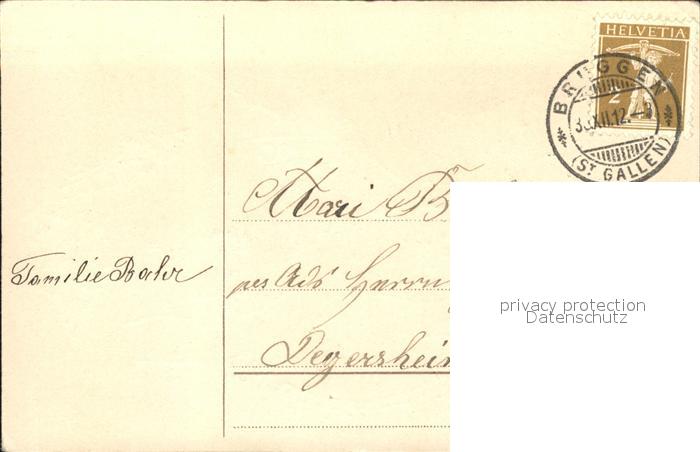 HELVETIA
2
BRUGGEN
XII.12.
(ST GALLEN)
Mari B
Familie Bahr
per Ads Herrn
Degersheim
privacy protection
Datenschutz